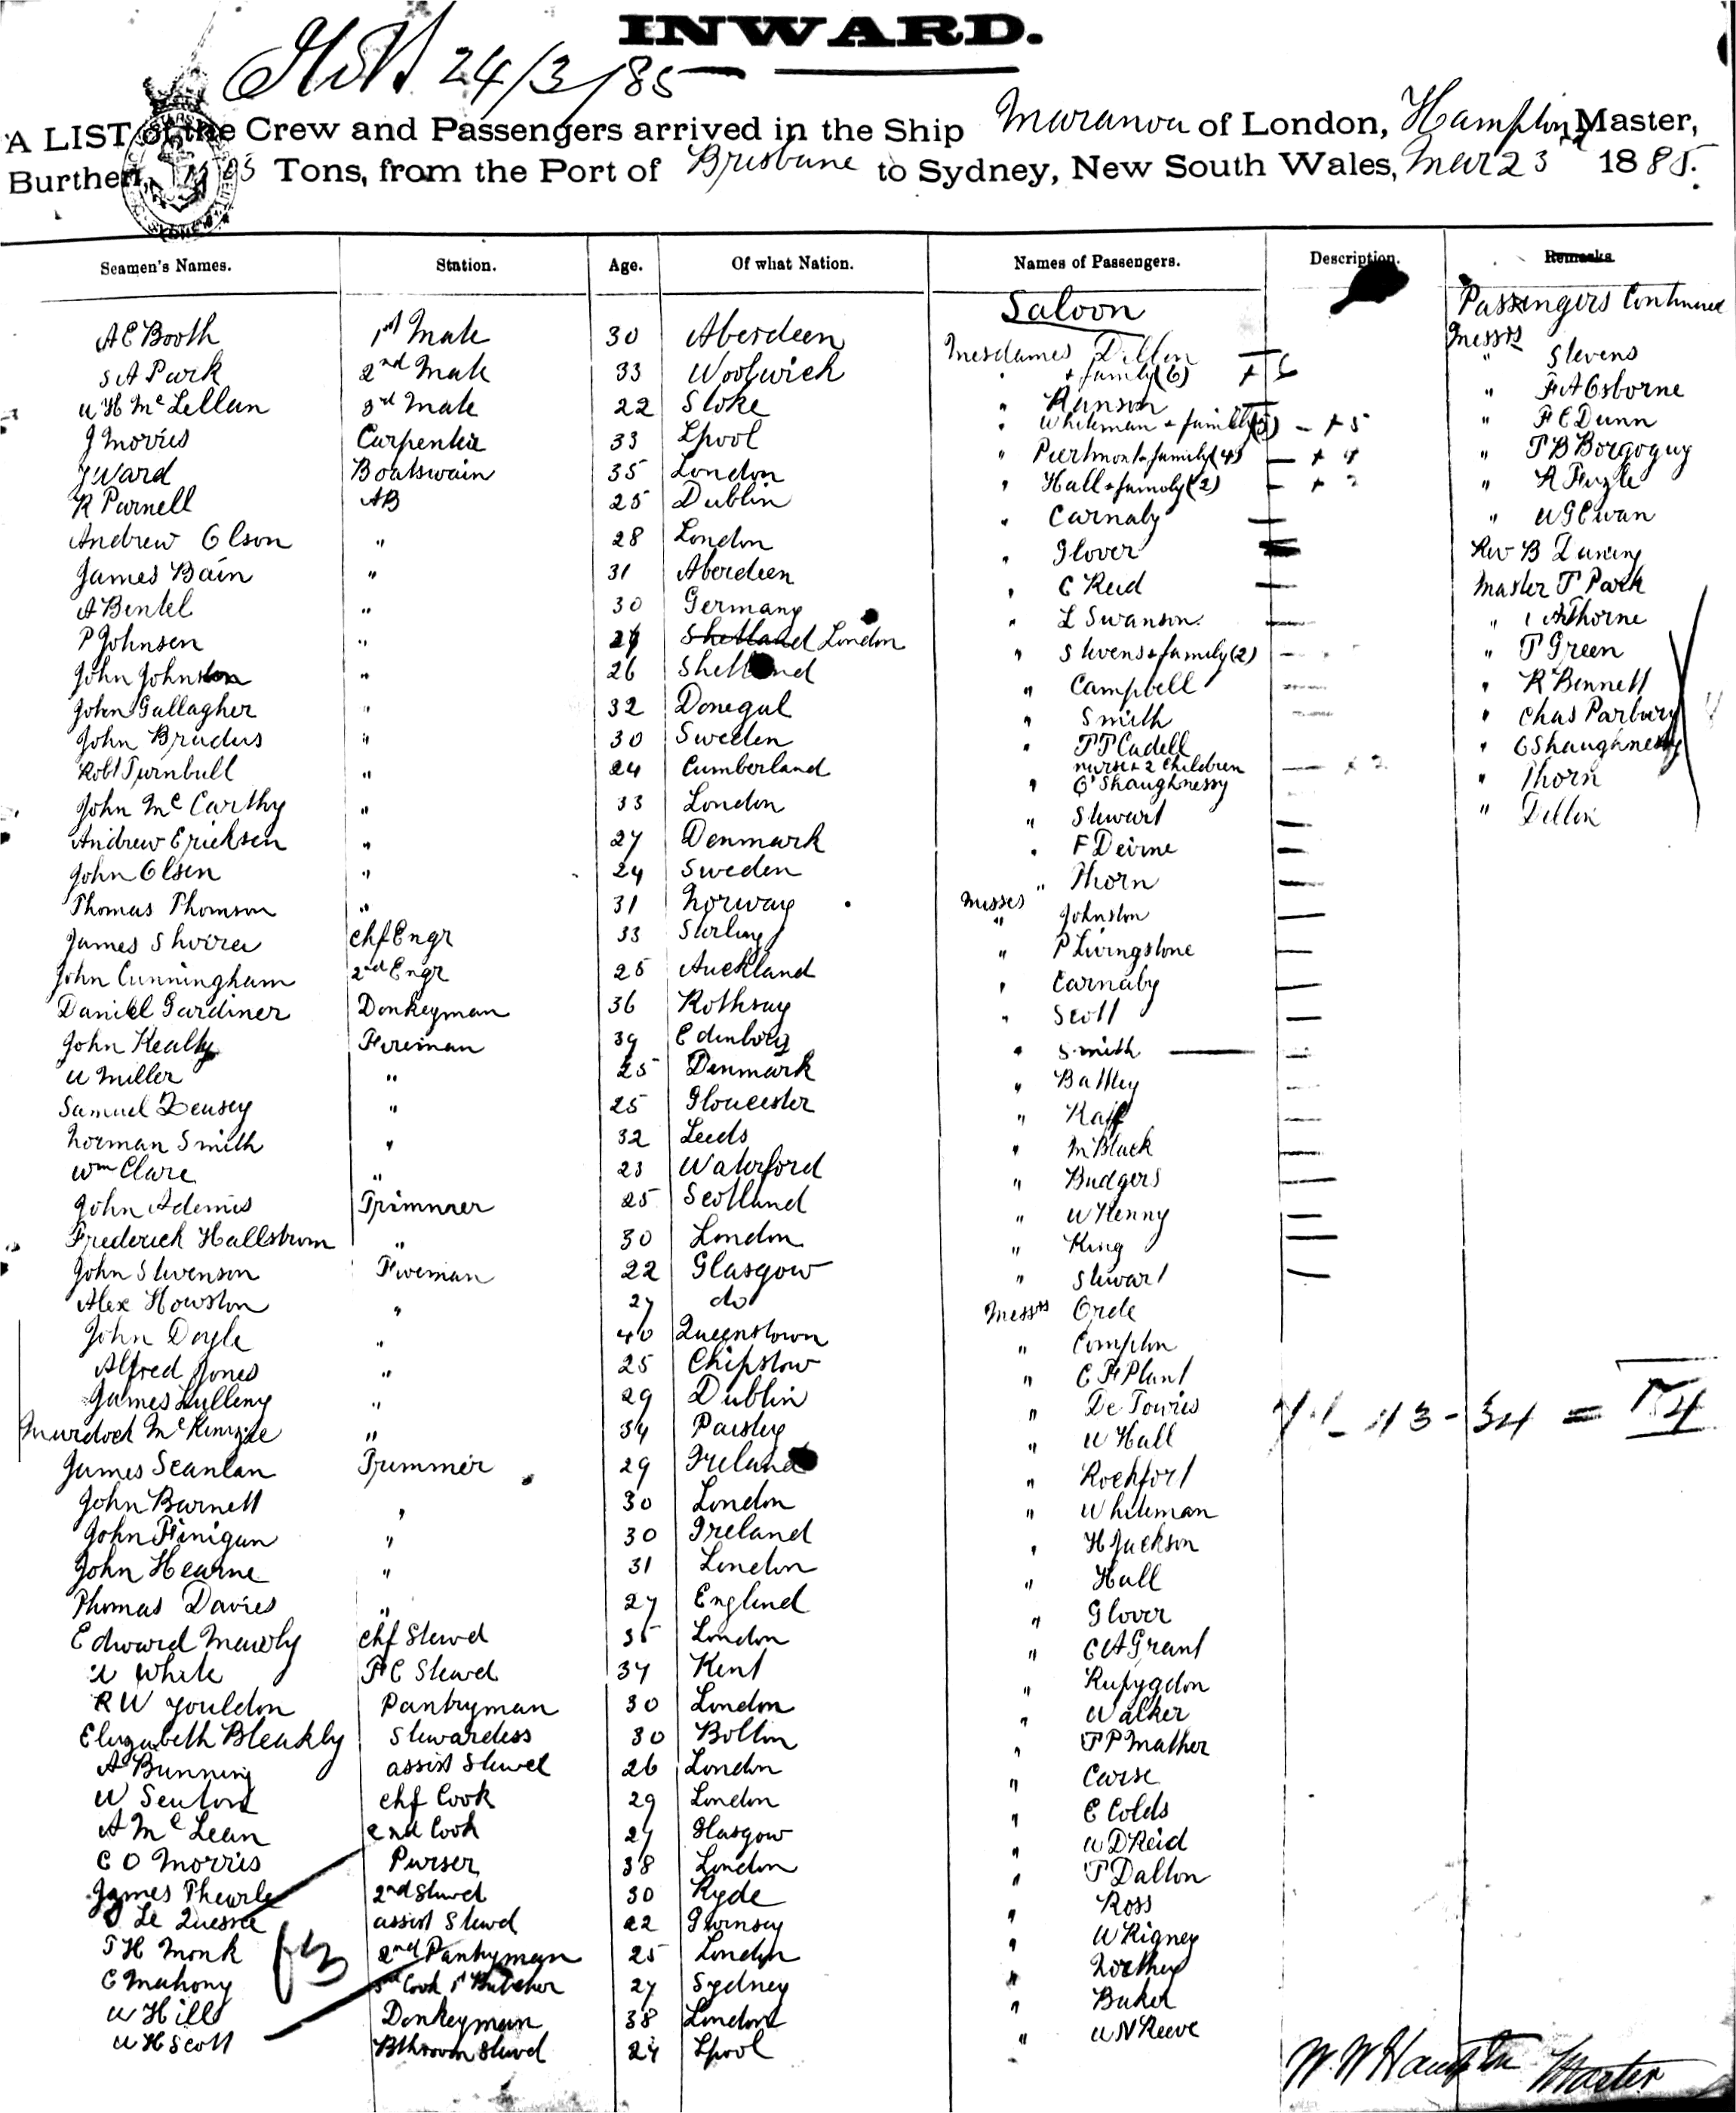 INWARD.
24/3/85
A LIST of the Crew and Passengers arrived in the Ship Maranoa of London, Hampton Master,
Burthen Tons, from the Port of Brisbane to Sydney, New South Wales, Mar 23rd 1885.
Seamen's Names. Station. Age. Of what Nation. Names of Passengers. Description. Remarks
Saloon Passengers Continued
A E Booth 1st Mate 30 Aberdeen Mesdames Dillon Messrs
S A Park 2nd Mate 33 Woolwich + family (6) + 6 " Stevens
W H McLellan 3rd Mate 22 Stoke " Ranson " F A Osborne
J Morris Carpenter 33 Lpool " Whiteman + family (5) - + 5 " F C Dunn
J Ward Boatswain 35 London " Piertmont + family (4) - + 4 " T B Borgoguy
R Parnell AB 25 Dublin " Hall + family (2) - + 2 " R
Andrew Olson " 28 London " Carnaby " W G Ewan
James Bain " 31 Aberdeen " Glover Rev B
A Bentel " 30 Germany " C Reid Master T Park
P Johnsen " Shetland London " L Swanson " A Thorne
John Johnston " 26 Shetland " Stevens + family (2) " T Green
John Gallagher " 32 Donegal " Campbell " R Bennett
John Bruders " 30 Sweden " Smith " Chas Parbury
Robt Turnbull " 24 Cumberland " T T Cadell " O Shaughnessy
nurse + 2 children + 2
John McCarthy " 33 London " O'Shaughnessy " Thorn
Andrew Ericksen " 27 Denmark " Stewart " Dillon
John Olsen " 24 Sweden " F Deirne
Thomas Thomson " 31 Norway " Thorn
James Shirra chf Engr 33 Stirling Misses Johnston
John Cunningham 2nd Engr 25 Auckland " P Livingstone
Daniel Gardiner Donkeyman 36 Rothsay " Carnaby
John Kealty Fireman 39 Edinburg " Scott
W Miller " 25 Denmark " Smith
Samuel Densey " 25 Gloucester " Battley
Norman Smith " 32 Leeds " Raff
Wm Clare " 23 Waterford " M Black
John Ademis Trimmer 25 Scotland " Budgers
Frederick Hallstrom " 30 London " W Kenny
John Stevenson Fireman 22 Glasgow " King
Alex Howston " 27 do " Stewart
John Doyle " 40 Queenstown Messrs Orde
Alfred Jones " 25 Chipstow " Compton
James Lulleny " 29 Dublin " C F Plant
Murdock McKenzie " 34 Paisley " De Towies
James Scanlan Trimmer 29 Ireland " W Hall
John Barnett " 30 London " Rochfort
John Finigan " 30 Ireland " Whiteman
John Hearne " 31 London " H Jackson
Thomas Davies " 27 England " Hall
Edward Mewly chf Stewd 35 London " Glover
W White F C Stewd 37 Kent " C A Grant
R W Youldon Pantryman 30 London " Rupygdon
Elizabeth Bleakly Stewardess 30 Bolton " Walker
A Bunning assist Stewd 26 London " T P Mather
W Senton chf Cook 29 London " Carse
A McLean 2nd Cook 27 Glasgow " E Colds
C O Morris Purser 38 London " W D Reid
James Thewrle 2nd Stewd 30 Ryde " T Dalton
Le Quesne assist Stewd 22 Guernsey " Ross
T H Monk 2nd Pantryman 25 London " W Rigney
C Mahony 3rd Cook & Butcher 27 Sydney " Northey
W Hill Donkeyman 38 London " Baker
W H Scott Bthroom Stewd 24 Lpool " W N Reeve
W. W Hampton Master